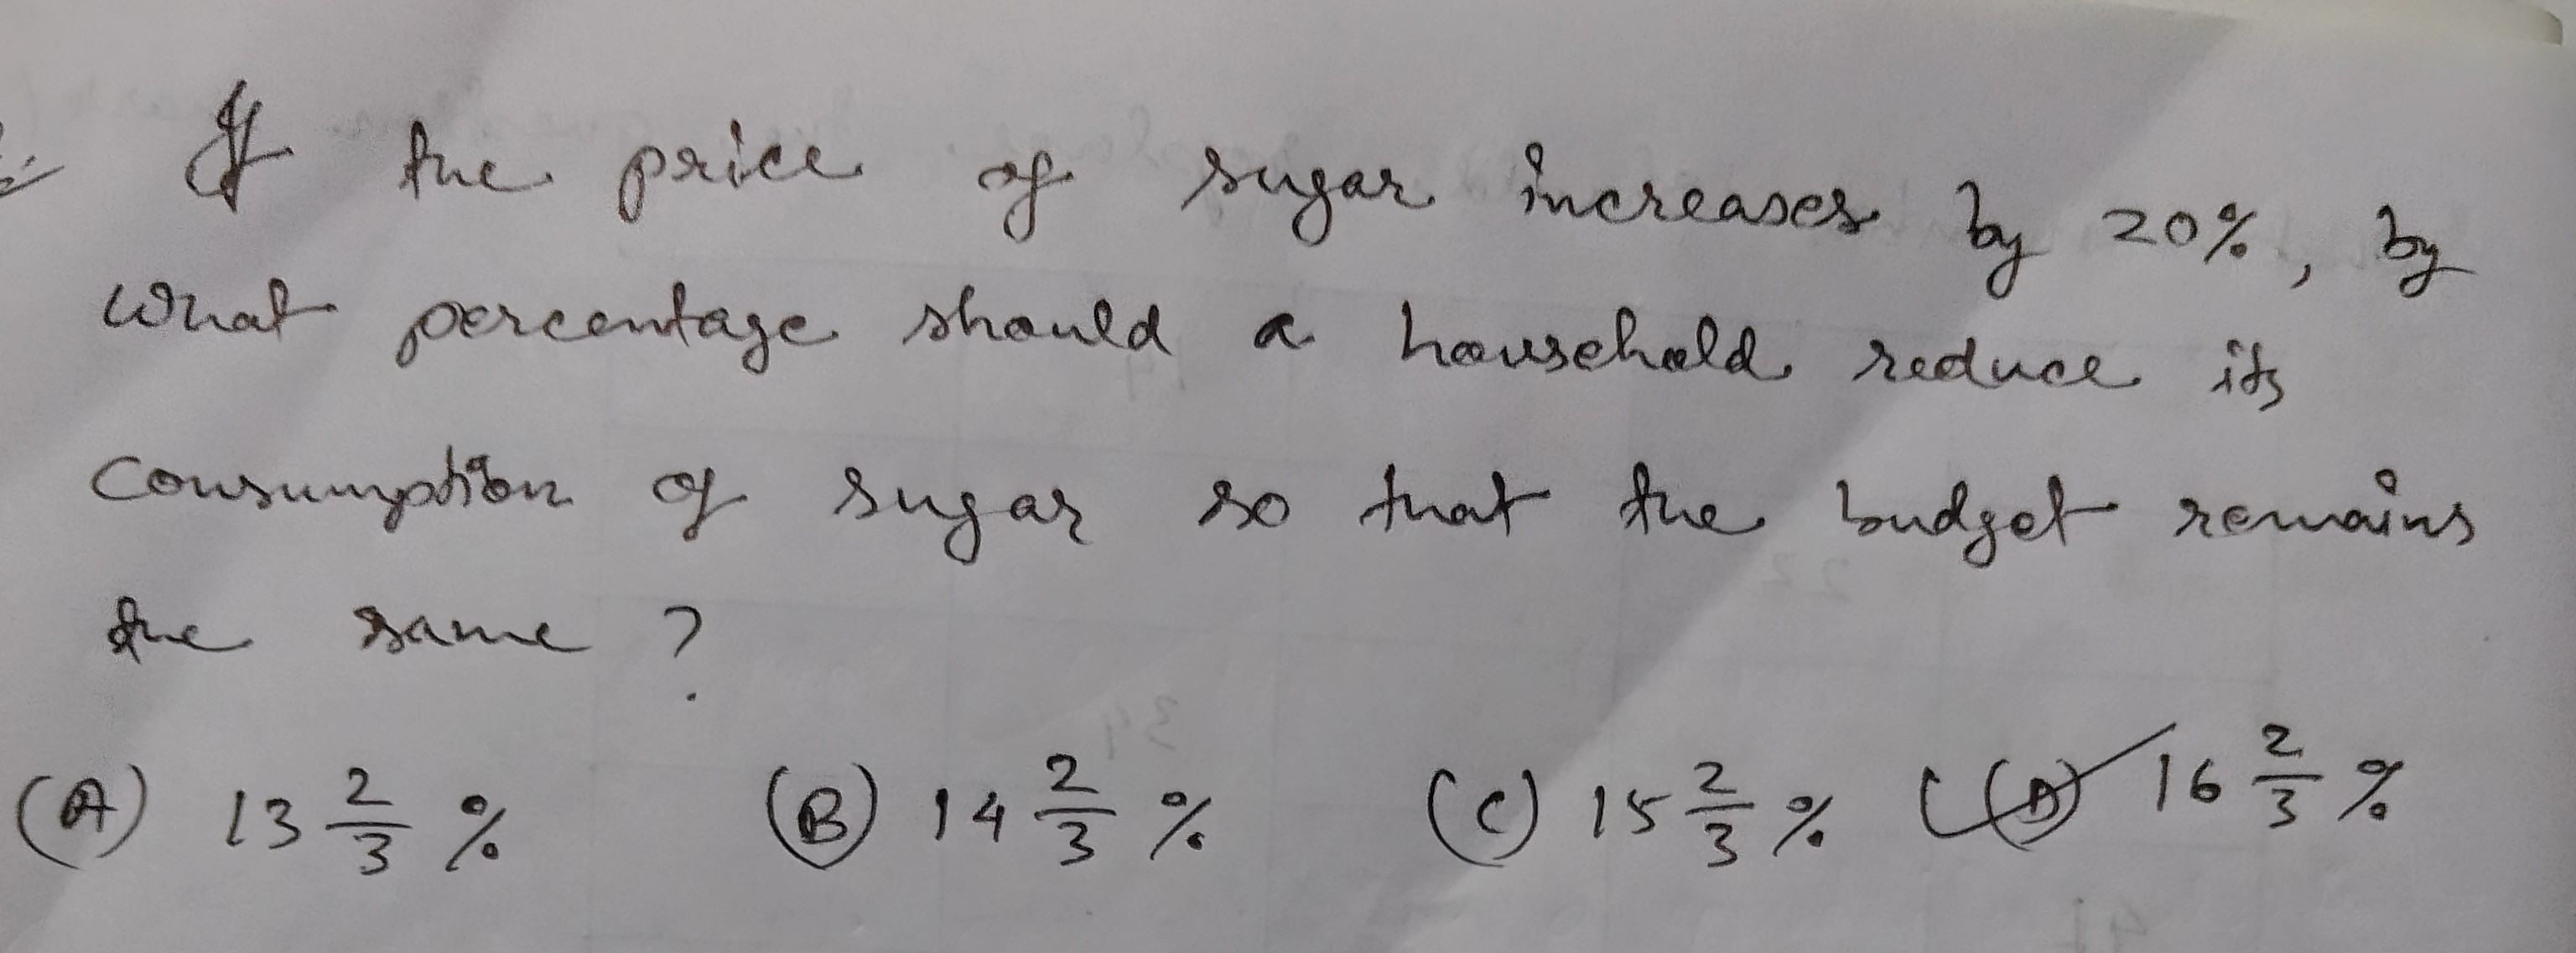 If the price of sugar increases by 20%, by
what percentage should a household reduce its
consumption of sugar so that the budget remains
the same ?
(A) 13 2/3 % (B) 14 2/3 % (C) 15 2/3 % (D) 16 2/3 %